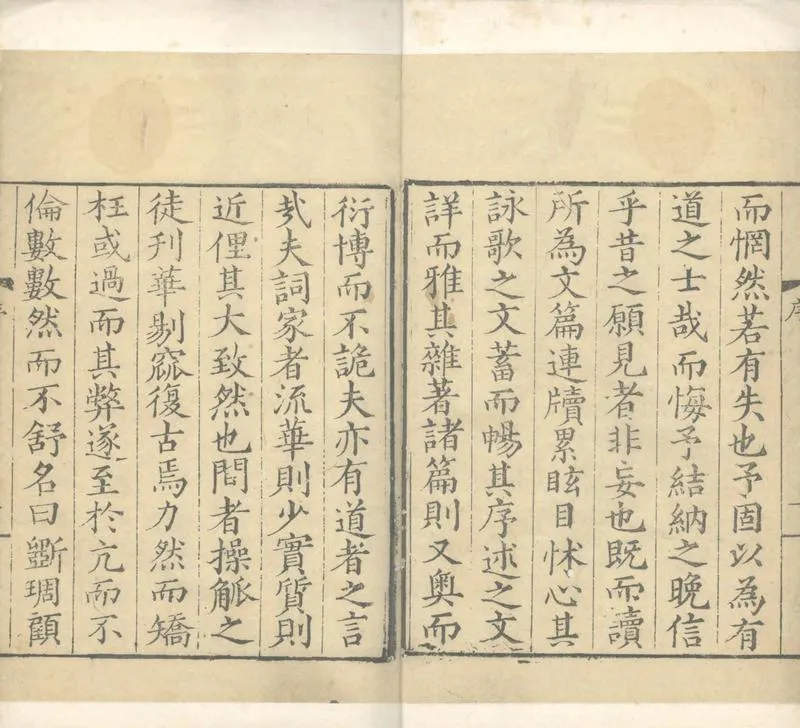 而惘然若有失也予固以為有
道之士哉而悔予結納之晚信
乎昔之願見者非妄也既而讀
所為文篇連牘累眩目怵心其
詠歌之文蓄而暢其序述之文
詳而雅其雜著諸篇則又奧而
衍博而不詭夫亦有道者之言
㢤夫詞家者流華則少實質則
近俚其大致然也間者操觚之
徒刋華剔窾復古焉力然而矯
枉或過而其弊遂至於亢而不
倫數數然而不舒名曰斲琱顧
序